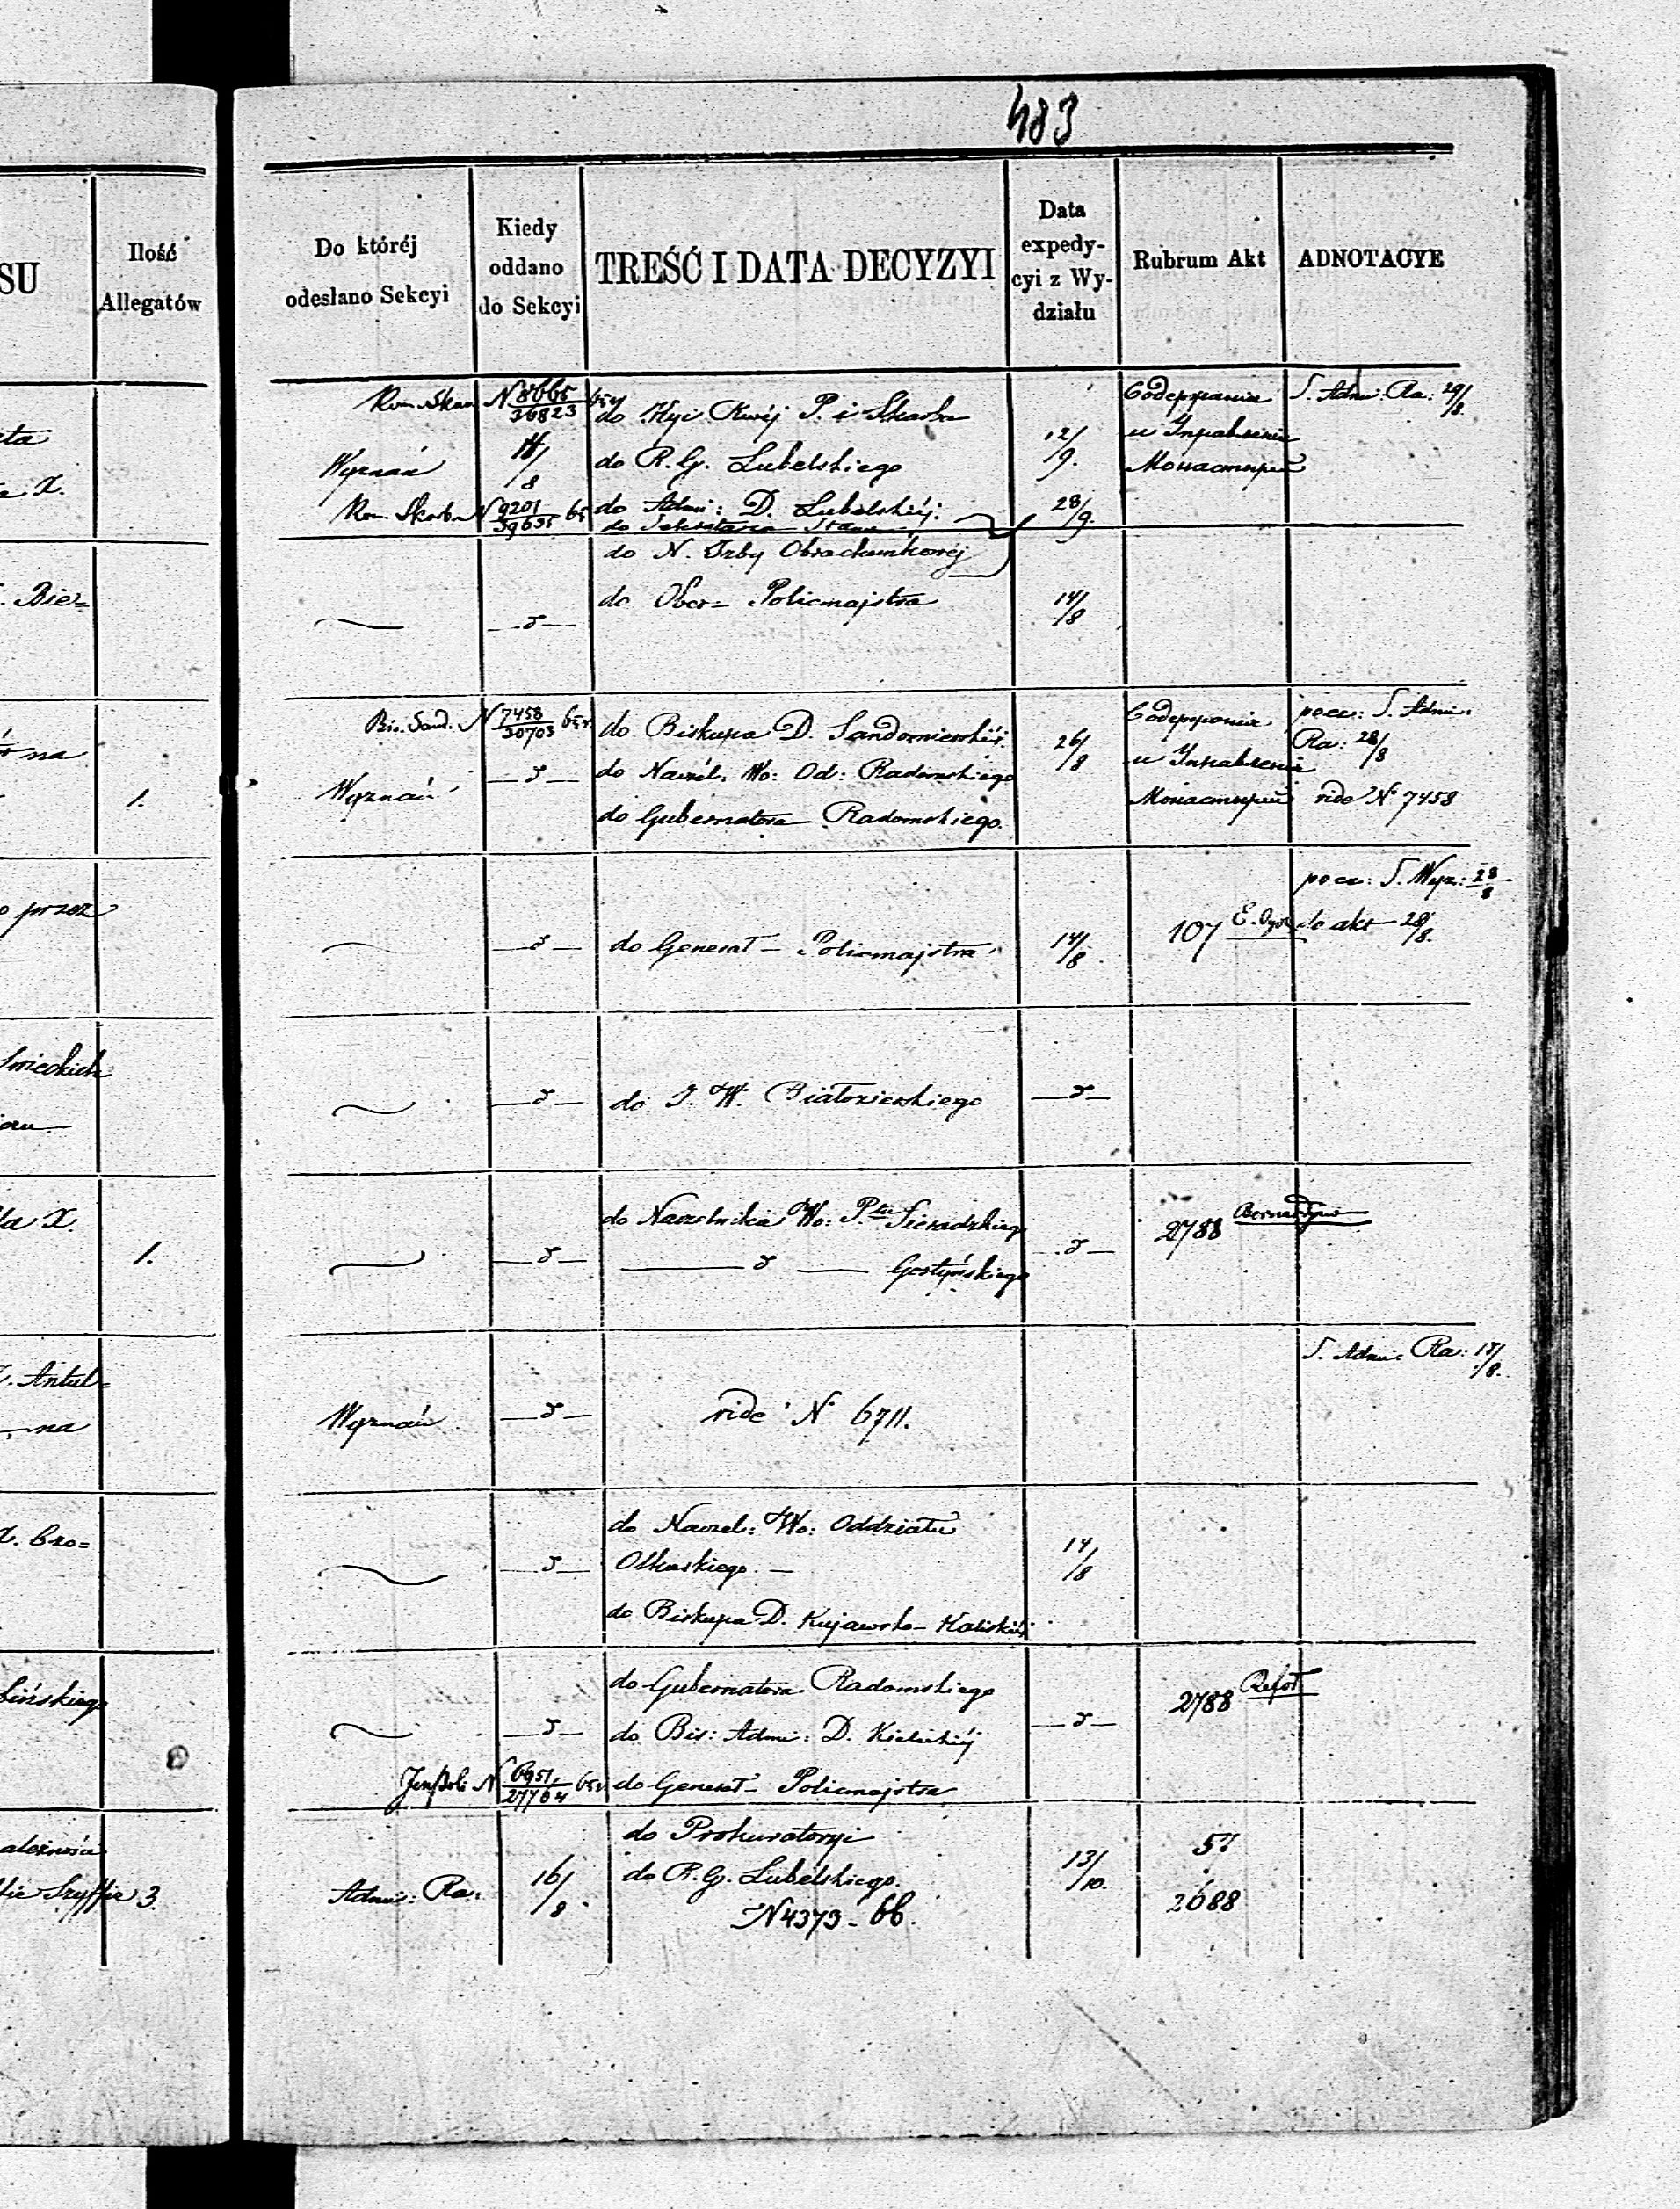 483
SU
Ilość
Allegatów
Do któréj
odesłano Sekcyi
Kiedy
oddano
do Sekcyi
TREŚĆ I DATA DECYZYI
Data
expedy-
cyi z Wy-
działu
Rubrum Akt
ADNOTACYE
N 8665/36823 65
do P. i Skarbu
12/9.
S. Admi: Ra: 29/8.
Wyznań
14/8
do R. G. Lubelskiego
Kom. Skarb. N 9201/39635 65
do Admi: D. Lubelskiéj:
28/9.
do Sekretarza Stanu
do N. Izby Obrachunkowéj
. Bier=
— d —
do Ober= Policmajstra
14/8
na
1.
Bis. Sand. N 7458/30703 65 r.
do Biskupa D. Sandomierskiéj.
26/8
Wyznań
— d —
do Naczél: Wo: Od: Radomskiego
do Gubernatora Radomskiego.
Содержание
и Управление
Монастырей
pocz: S. Admi:
Ra: 28/8
vide N 7458
przez
— d —
do Generał — Policmajstra
14/8.
107
pocz: S. Wyz: 28/8
do akt 28/8.
Świeckich
— d —
do J. W. Białoskórskiego
— d —
X.
1.
— d —
do Naczelnika Wo: Ptu Sieradzkiego
— d — Gostyńskiego
— d —
2788 Bernardynów
. Antul=
na
Wyznań
— d —
vide N 6711.
S. Admi: Ra: 18/8.
— d —
do Naczel: Wo: Oddziału
Olkuskiego. —
do Biskupa D. Kujawsko — Kaliskiéj
14/8
bińskiego
— d —
do Gubernatora Radomskiego
do Bis: Admi: D. Kieleckiéj
— d —
2788 Refor
N 6951/27764 65 r.
do Generał — Policmajstra
ależności
Szyffie 3.
Admi: Ra:
16/8.
do Prokuratoryi
do R. G. Lubelskiego.
N 4373 — 66.
13/10.
57
2688